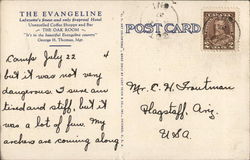 THE EVANGELINE
Lafayette's finest and only fireproof Hotel
Unexcelled Coffee Shoppe and Bar
THE OAK ROOM
"It's in the beautiful Evangeline country"
George H. Thomas, Mgr.
POST CARD
Camp July 22 4
but it was not very
dangerous. I sure am
tired and stiff, but it
was a lot of fun. My
arches are coming along
Mr. C. H. Troutman
Flagstaff, Ariz.
USA.